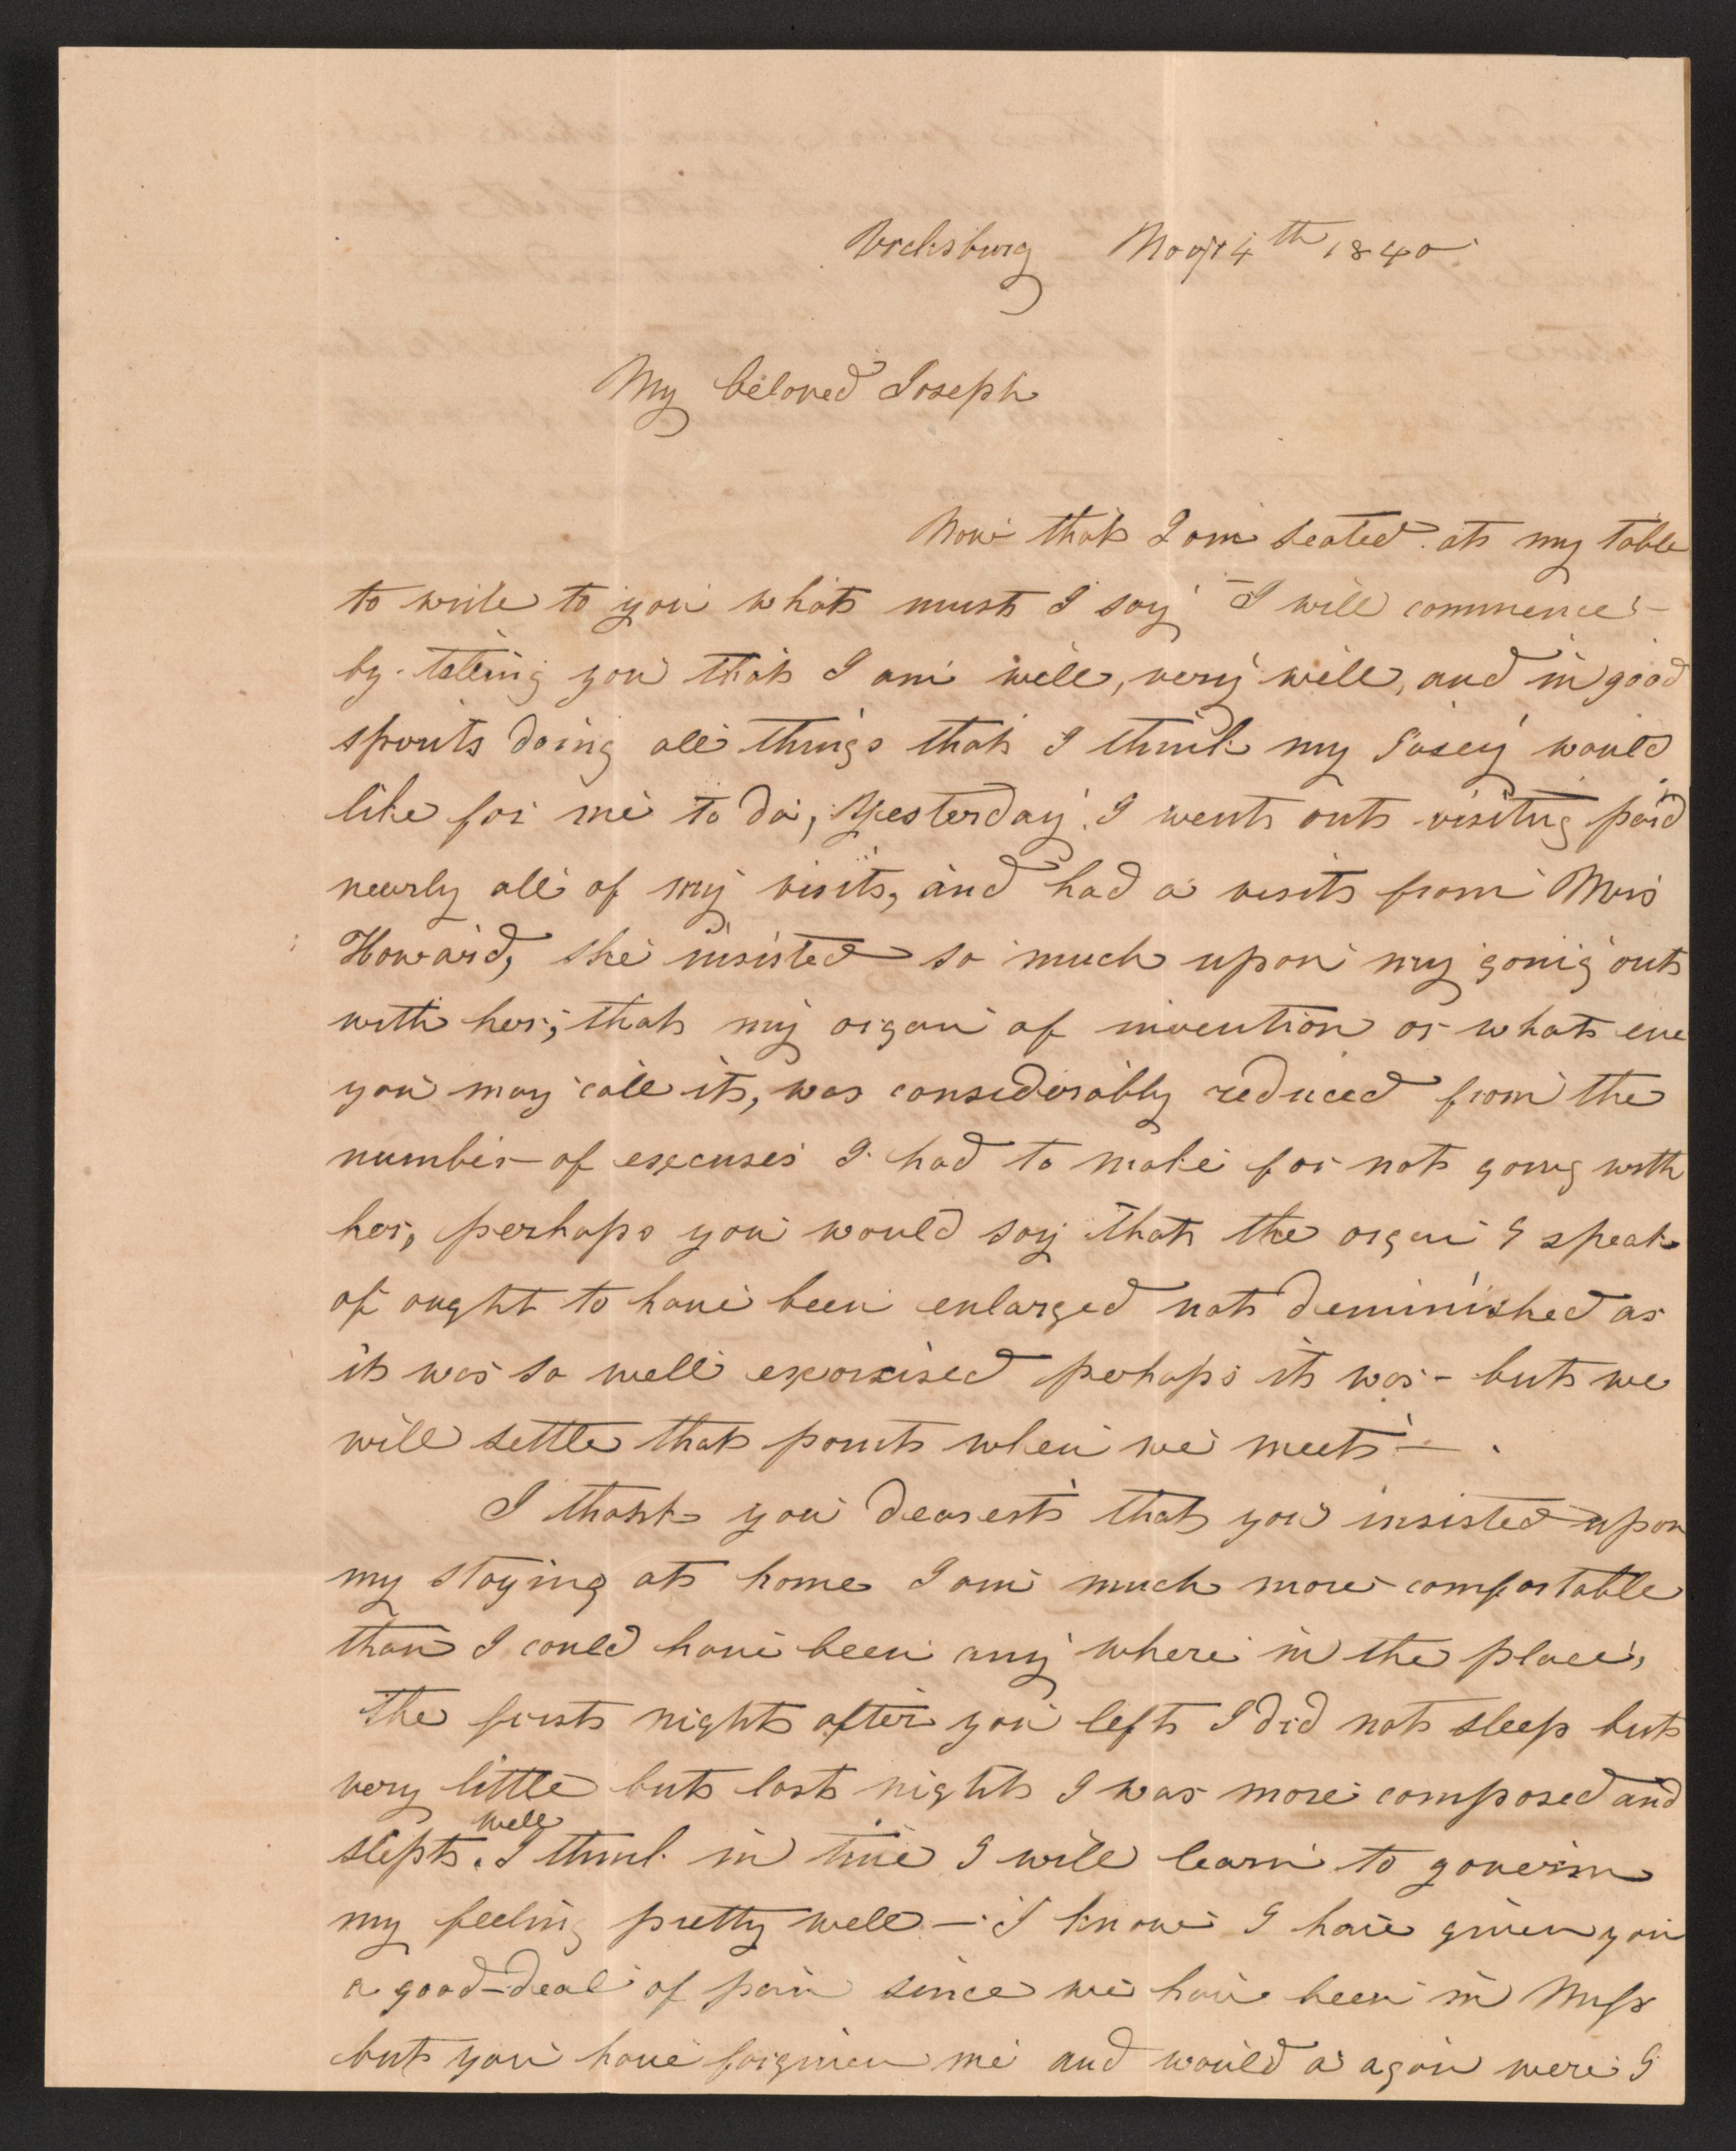 Vicksburg May 14th 1840
My beloved Joseph
Now that I am seated at my table
to write to you what must I say - I will commence -
by telling you that I am well, very well, and in good
spirits doing all things that I think my Josey would
like for me to do, yesterday I went out visiting paid
nearly all of my visits, and had a visit from Mrs
Howard, she insisted so much upon my going out
with her, that my organ of invention or what eve
you may call it, was considerably reduced from the
number of excuses I had to make for not going with
her, perhaps you would say that the organ I speak
of ought to have been enlarged not deminished as
it was so well exercised perhaps it was - but we
will settle that point when we meet - .
I thank you dearest that you insisted upon
my staying at home I am much more comfortable
than I could have been any where in the place,
The first night after you left I did not sleep but
very little but last night I was more composed and
slept well. I think in time I will learn to govern
my feeling pretty well - I know I have given you
a good-deal of pain since we have been in Miss
but you have forgiven me and would a again were I